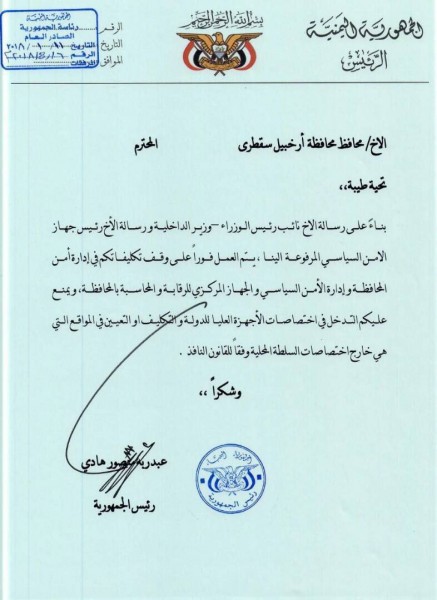 الجمهورية اليمنية
الرئيس
بسم الله الرحمن الرحيم
الرقم
التاريخ
الموافق
الجمهورية اليمنية
رئاسة الجمهورية
الصادر العام
التاريخ
الرقم
المرفقات
الاخ/ محافظ محافظة أرخبيل سقطرى المحترم
تحية طيبة،،
بناءً على رسالة الاخ نائب رئيس الوزراء – وزير الداخلية ورسالة الأخ رئيس جهاز
الامن السياسي المرفوعة الينا، يتم العمل فوراً على وقف تكليفاتكم في إدارة أمن
المحافظة وإدارة الأمن السياسي والجهاز المركزي للرقابة والمحاسبة بالمحافظة، ويمنع
عليكم التدخل في اختصاصات الأجهزة العليا للدولة والتكليف او التعيين في المواقع التي
هي خارج اختصاصات السلطة المحلية وفقاً للقانون النافذ .
وشكراً ،،
عبدربه منصور هادي
رئيس الجمهورية
رئيس الجمهورية